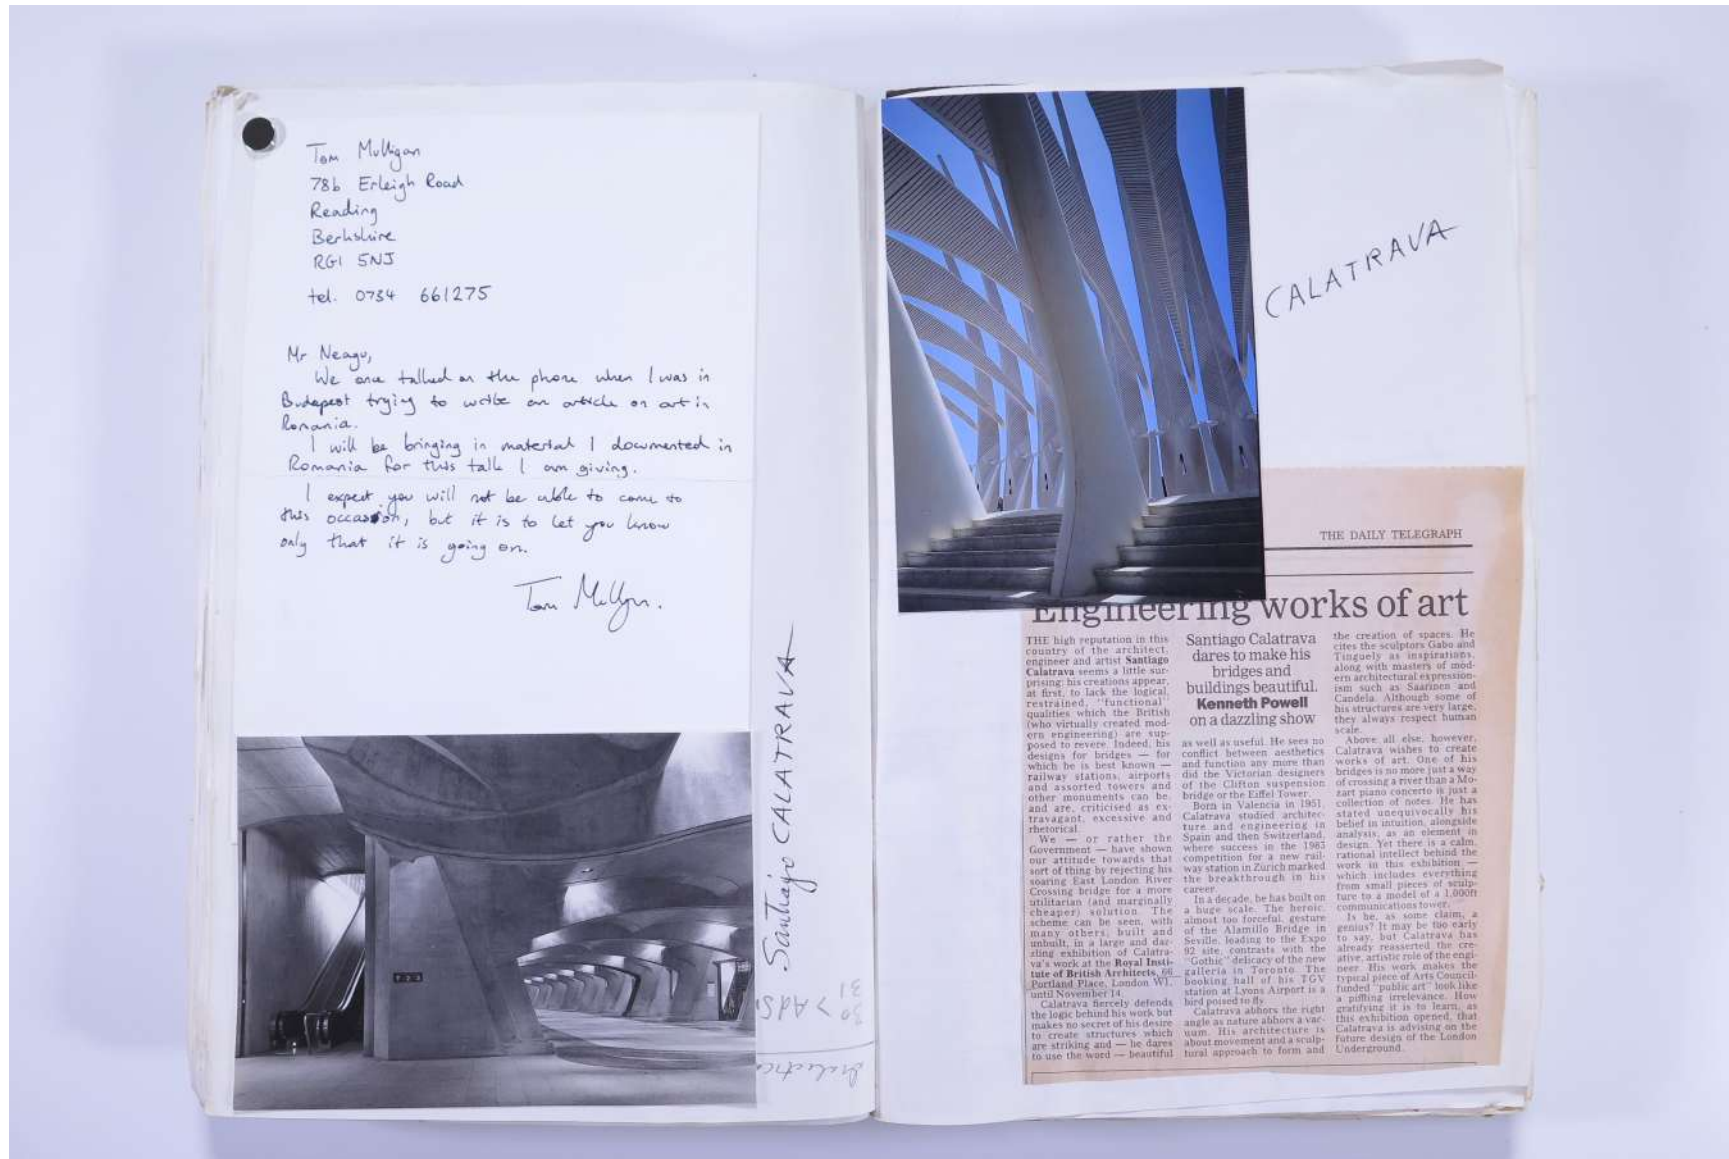 Tom Mulligan
78b Erleigh Road
Reading
Berkshire
RG1 5NJ
tel. 0734 661275
Mr Neagu,
We once talked on the phone when I was in
Budapest trying to write an article on art in
Romania.
I will be bringing in material I documented in
Romania for this talk I am giving.
I expect you will not be able to come to
this occasion, but it is to let you know
only that it is going on.
Tom Mulligan.
Santiago CALATRAVA
31
30 >
CALATRAVA
THE DAILY TELEGRAPH
Engineering works of art
THE high reputation in this
country of the architect,
engineer and artist Santiago
Calatrava seems a little sur-
prising: his creations appear,
at first, to lack the logical,
restrained, "functional"
qualities which the British
(who virtually created mod-
ern engineering) are sup-
posed to revere. Indeed, his
designs for bridges — for
which he is best known —
railway stations, airports
and assorted towers and
other monuments can be,
and are, criticised as ex-
travagant, excessive and
rhetorical.
We — or rather the
Government — have shown
our attitude towards that
sort of thing by rejecting his
soaring East London River
Crossing bridge for a more
utilitarian (and marginally
cheaper) solution. The
scheme can be seen, with
many others, built and
unbuilt, in a large and daz-
zling exhibition of Calatra-
va's work at the Royal Insti-
tute of British Architects, 66
Portland Place, London W1,
until November 14.
Calatrava fiercely defends
the logic behind his work but
makes no secret of his desire
to create structures which
are striking and — he dares
to use the word — beautiful
Santiago Calatrava
dares to make his
bridges and
buildings beautiful.
Kenneth Powell
on a dazzling show
as well as useful. He sees no
conflict between aesthetics
and function any more than
did the Victorian designers
of the Clifton suspension
bridge or the Eiffel Tower.
Born in Valencia in 1951,
Calatrava studied architec-
ture and engineering in
Spain and then Switzerland,
where success in the 1983
competition for a new rail-
way station in Zurich marked
the breakthrough in his
career.
In a decade, he has built on
a huge scale. The heroic,
almost too forceful, gesture
of the Alamillo Bridge in
Seville, leading to the Expo
92 site, contrasts with the
"Gothic" delicacy of the new
galleria in Toronto. The
booking hall of his TGV
station at Lyons Airport is a
bird poised to fly.
Calatrava abhors the right
angle as nature abhors a vac-
uum. His architecture is
about movement and a sculp-
tural approach to form and
the creation of spaces. He
cites the sculptors Gabo and
Tinguely as inspirations,
along with masters of mod-
ern architectural expression-
ism such as Saarinen and
Candela. Although some of
his structures are very large,
they always respect human
scale.
Above all else, however,
Calatrava wishes to create
works of art. One of his
bridges is no more just a way
of crossing a river than a Mo-
zart piano concerto is just a
collection of notes. He has
stated unequivocally his
belief in intuition, alongside
analysis, as an element in
design. Yet there is a calm,
rational intellect behind the
work in this exhibition —
which includes everything
from small pieces of sculp-
ture to a model of a 1,000ft
communications tower.
Is he, as some claim, a
genius? It may be too early
to say, but Calatrava has
already reasserted the cre-
ative, artistic role of the engi-
neer. His work makes the
typical piece of Arts Council-
funded "public art" look like
a piffling irrelevance. How
gratifying it is to learn, as
this exhibition opened, that
Calatrava is advising on the
future design of the London
Underground.